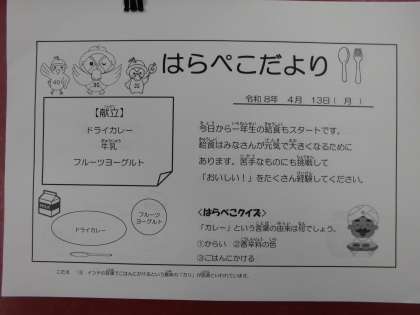 はらぺこだより
令和8年 4月 13日(月)
【献立】
ドライカレー
牛乳
フルーツヨーグルト
今日から一年生の給食もスタートです。
給食はみなさんが元気で大きくなるために
あります。苦手なものにも挑戦して
「おいしい!」をたくさん経験してください。
フルーツ
ヨーグルト
ドライカレー
<はらぺこクイズ>
「カレー」という言葉の由来は何でしょう。
①からい ②香辛料の色
③ごはんにかける
こたえ ③ インドの言葉でごはんにかけるという意味の「カリ」が由来といわれています。